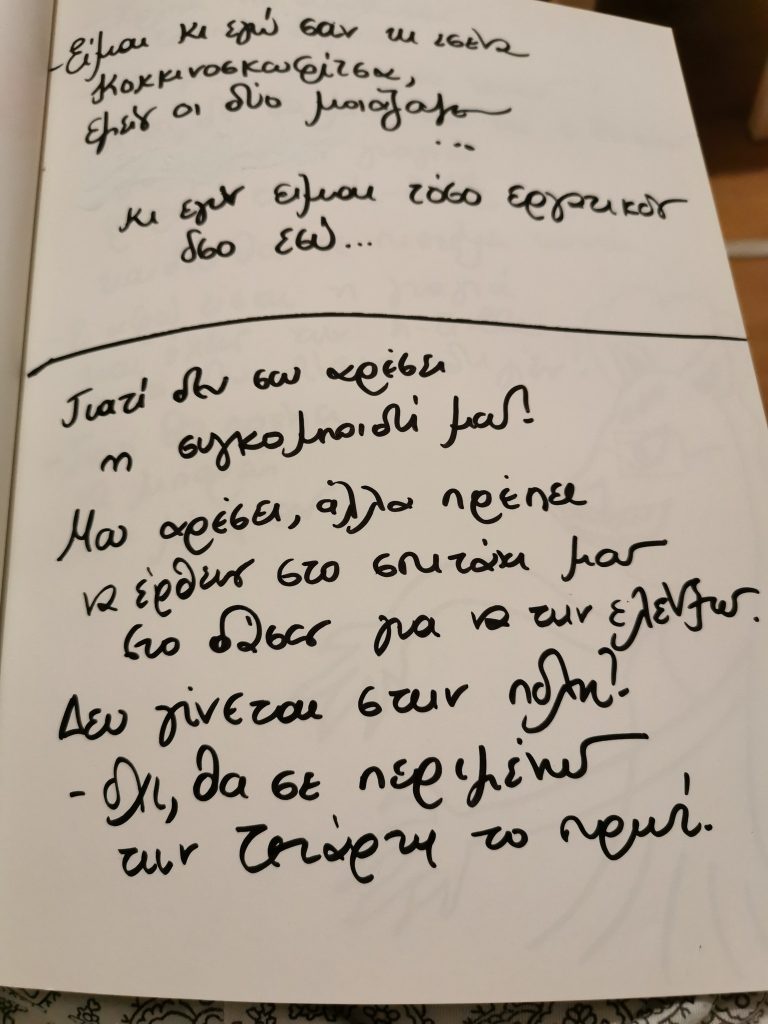 -Είμαι κι εγώ σαν κι εσένα
Κοκκινοσκουφίτσα,
εμείς οι δύο μοιάζαμε
...
κι εγώ είμαι τόσο εργατικός
όσο εσύ...
Γιατί δεν σου αρέσει
η συγκομιδή μας?
Μου αρέσει, άλλα πρέπει
να έρθεις στο σπιτάκι μας
στο δάσος για να την ελένξω.
Δεν γίνεται στην πόλη?
- Όχι, θα σε περιμένω
την Τετάρτη το πρωί.